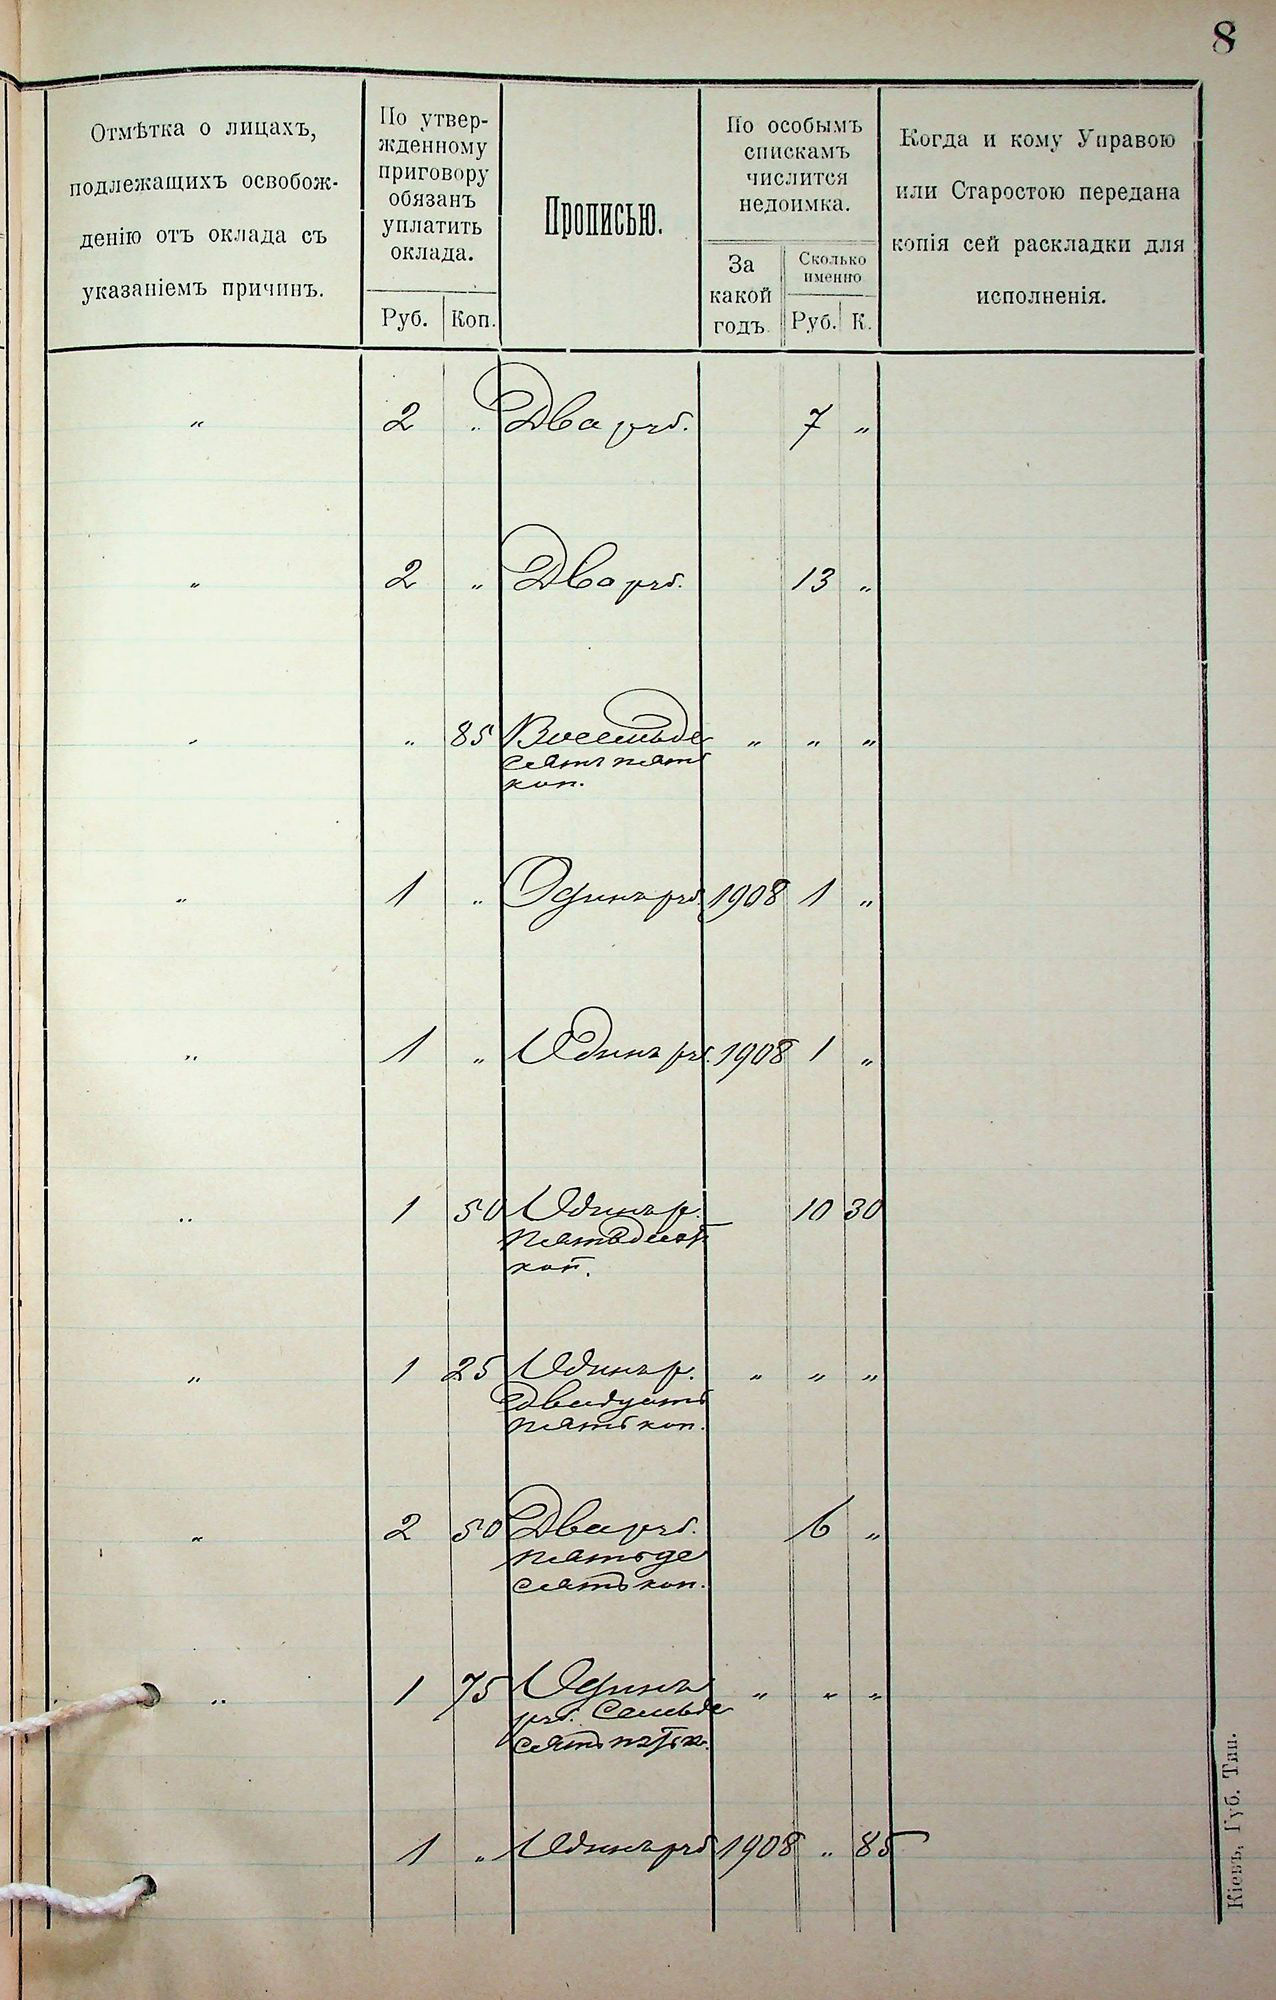 8
Отмѣтка о лицахъ,
подлежащихъ освобож-
денію отъ оклада съ
указаніемъ причинъ.
По утвер-
жденному
приговору
обязанъ
уплатить
оклада.
Руб. Коп.
Прописью.
По особымъ
спискамъ
числится
недоимка.
За
какой
годъ
Сколько
именно
Руб. К.
Когда и кому Управою
или Старостою передана
копія сей раскладки для
исполненія.
„ 2 „ Два руб. 7 „
„ 2 „ Два руб. 13 „
„ „ 85 Восемьде „ „ „
сять пять
коп.
„ 1 „ Одинъ руб. 1908 1 „
„ 1 „ Одинъ руб. 1908 1 „
„ 1 50 Одинъ р. 10 30
пятьдесят
коп.
„ 1 25 Одинъ р. „ „ „
двадцать
пять коп.
„ 2 50 Два руб. 6 „
пятьде
сять коп.
„ 1 75 Одинъ „ „ „
руб. семьде
сять пять к.
1 „ Одинъ руб 1908 „ 85
Кіевъ, Губ. Тип.